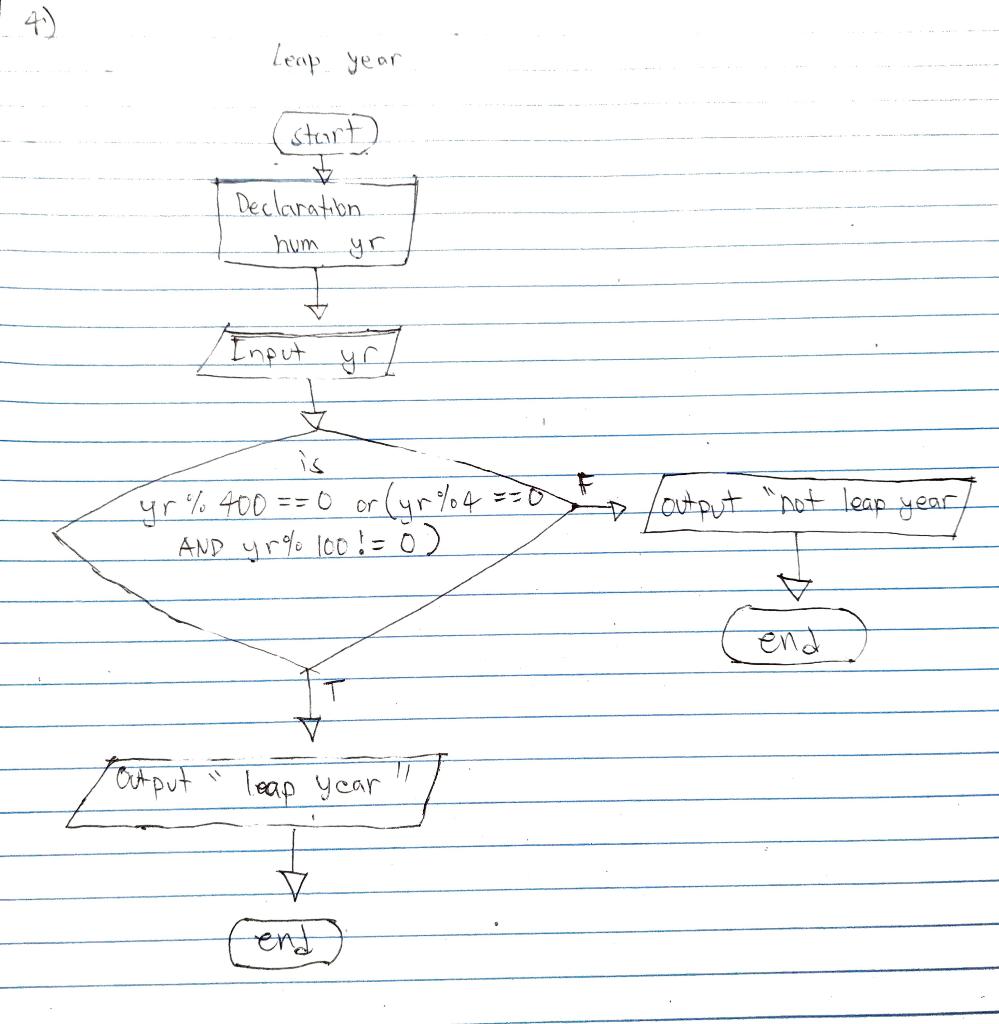 4)
Leap year
start
Declaration
num yr
Input yr
is
yr % 400 == 0 or (yr % 4 == 0
AND yr % 100 != 0)
F
output "not leap year
end
T
Output " leap year "
end